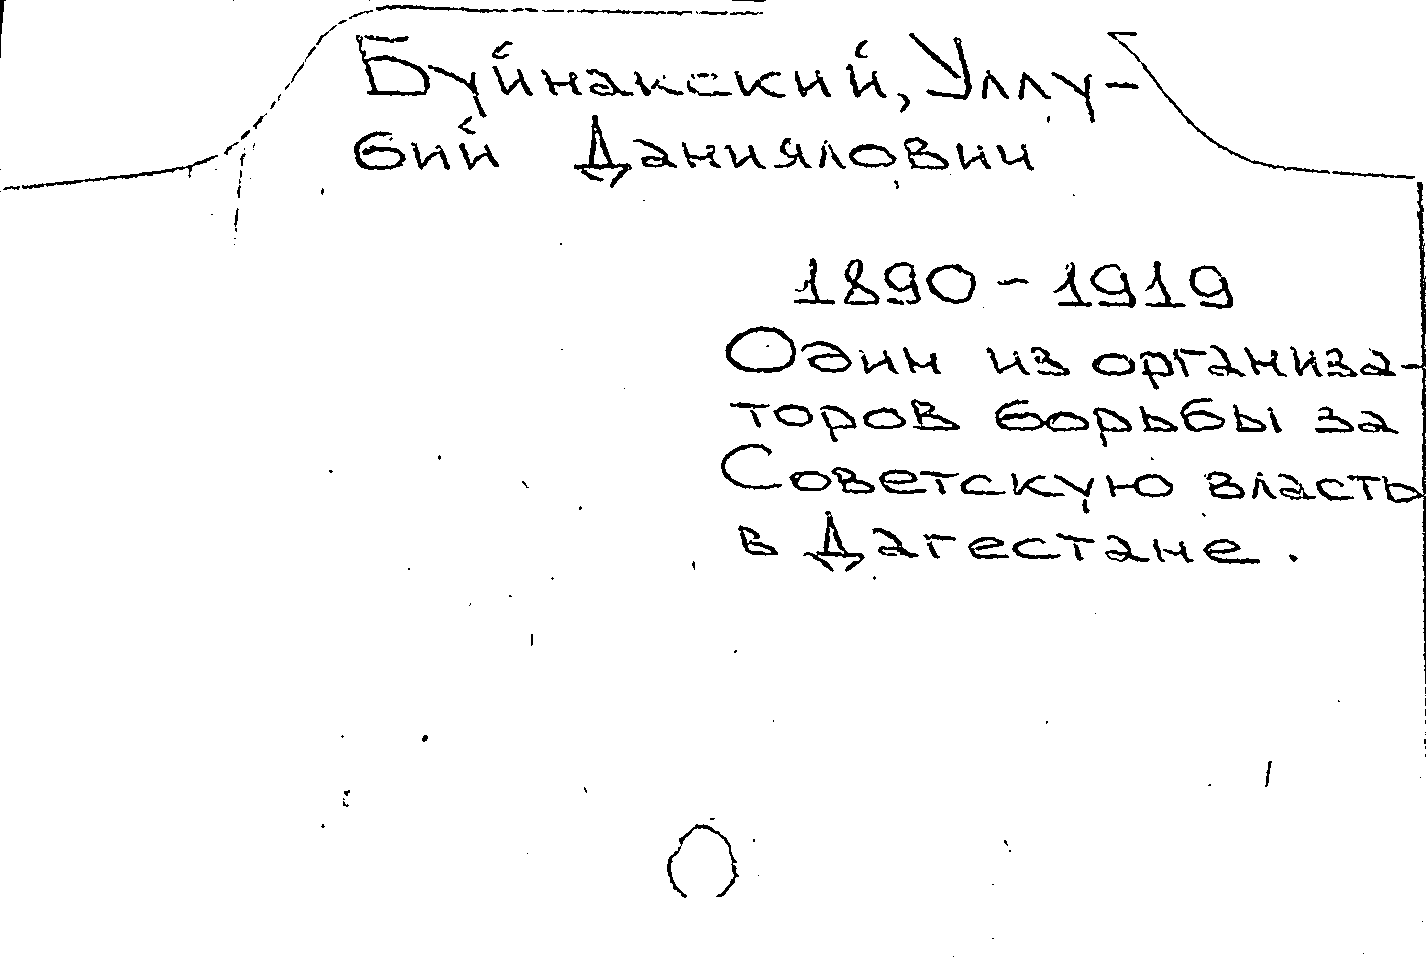 Буйнакский, Уллу-
бий Даниялович
1890 - 1919
Один из организа-
торов борьбы за
Советскую власть
в Дагестане.